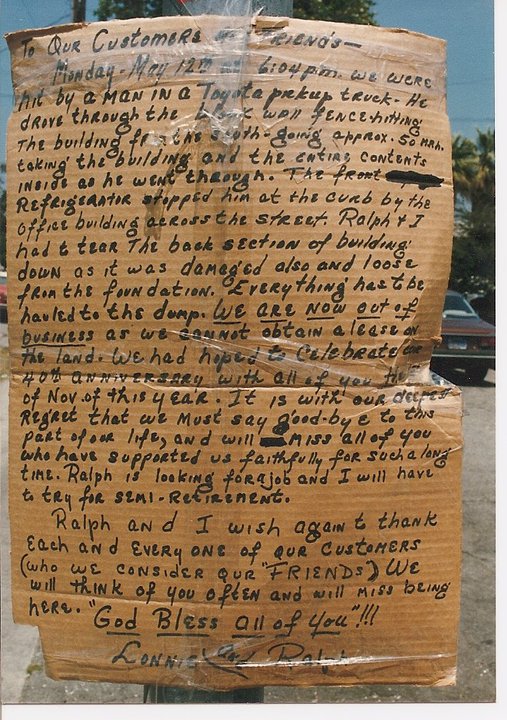 To Our Customers & Friends—
Monday - May 12th at 6:04 p.m. we were
hit by a man in a Toyota pickup truck. He
drove through the block wall fence hitting
The building from the south - going approx. 50 m.p.h.
taking the building and the entire contents
inside as he went through. The front
Refrigerator stopped him at the curb by the
office building across the street. Ralph & I
had t tear The back section of building
down as it was damaged also and loose
from the foundation. Everything has t be
hauled to the dump. We are now out of
business as we cannot obtain a lease on
the land. We had hoped to Celebrate our
40th anniversary with all of you the
of Nov of this year. It is with our deepest
Regret that we Must say good-bye to this
part of our life, and will miss all of you
who have supported us faithfully for such a long
time. Ralph is looking for a job and I will have
to try for semi-retirement.
Ralph and I wish again t thank
Each and Every one of our customers
(who we consider our "FRIENDS") We
will think of you often and will miss being
here. "God Bless all of You"!!!
Lonnie and Ralph